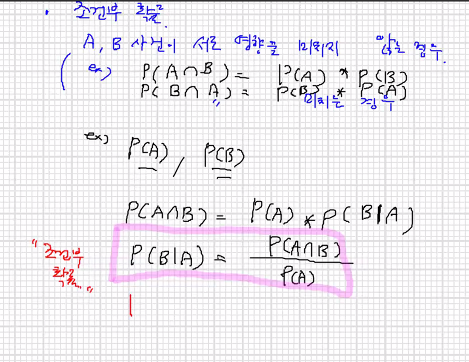 · 조건부 확률.
A, B 사건이 서로 영향을 미치지 않는 경우.
ex) P(A∩B) = P(A) * P(B)
P(B∩A) = P(B) * P(A)
" 미치는 경우
ex) P(A) / P(B)
P(A∩B) = P(A) * P(B|A)
"조건부 확률" P(B|A) = P(A∩B) / P(A)